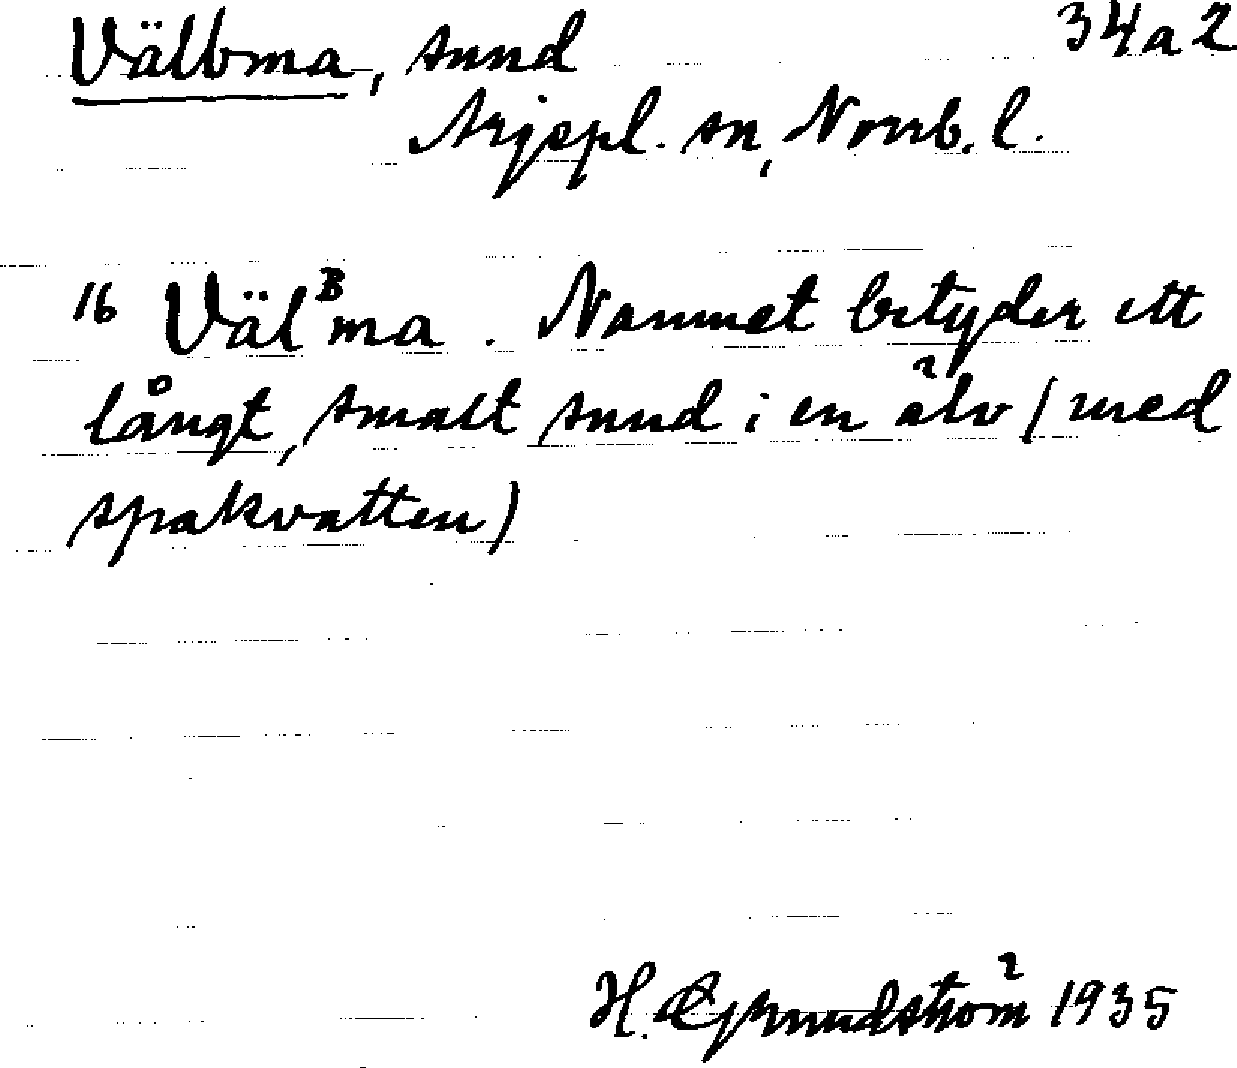 Välbma, sund 34a2
Arjepl. sn, Norrb. l.
16 Välᴮma. Namnet betyder ett
långt, smalt sund i en älv (med
spakvatten)
H. Grundström 1935